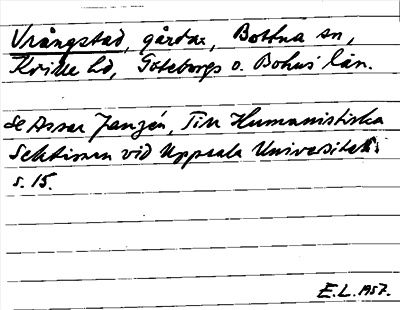 Vrångstad, gårdar, Bottna sn,
Kville hd, Göteborgs o. Bohus län.
se Assar Janzén, Till Humanistiska
Sektionen vid Uppsala Universitet
s. 15.
E.L. 1957.